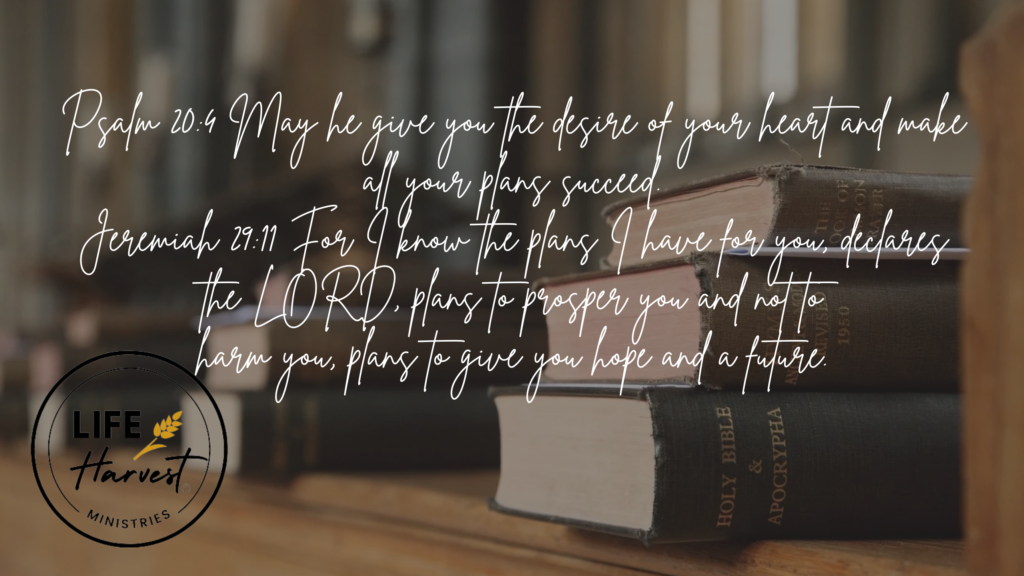 Psalm 20:4 May he give you the desire of your heart and make
all your plans succeed.
Jeremiah 29:11 For I know the plans I have for you, declares
the LORD, plans to prosper you and not to
harm you, plans to give you hope and a future.
LIFE
Harvest
MINISTRIES
1910
HOLY BIBLE
&
APOCRYPHA